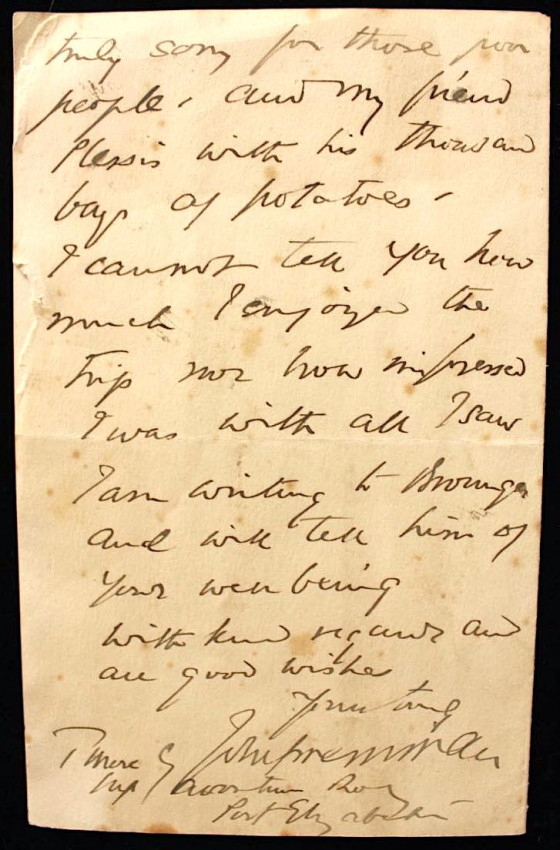 truly sorry for those poor
people, and my friend
Plessis with his thousand
bags of potatoes.
I cannot tell you how
much I enjoyed the
trip nor how impressed
I was with all I saw
I am writing to
and will tell him of
your well being
with kind regards and
all good wishes
Yours truly
Port Elizabeth